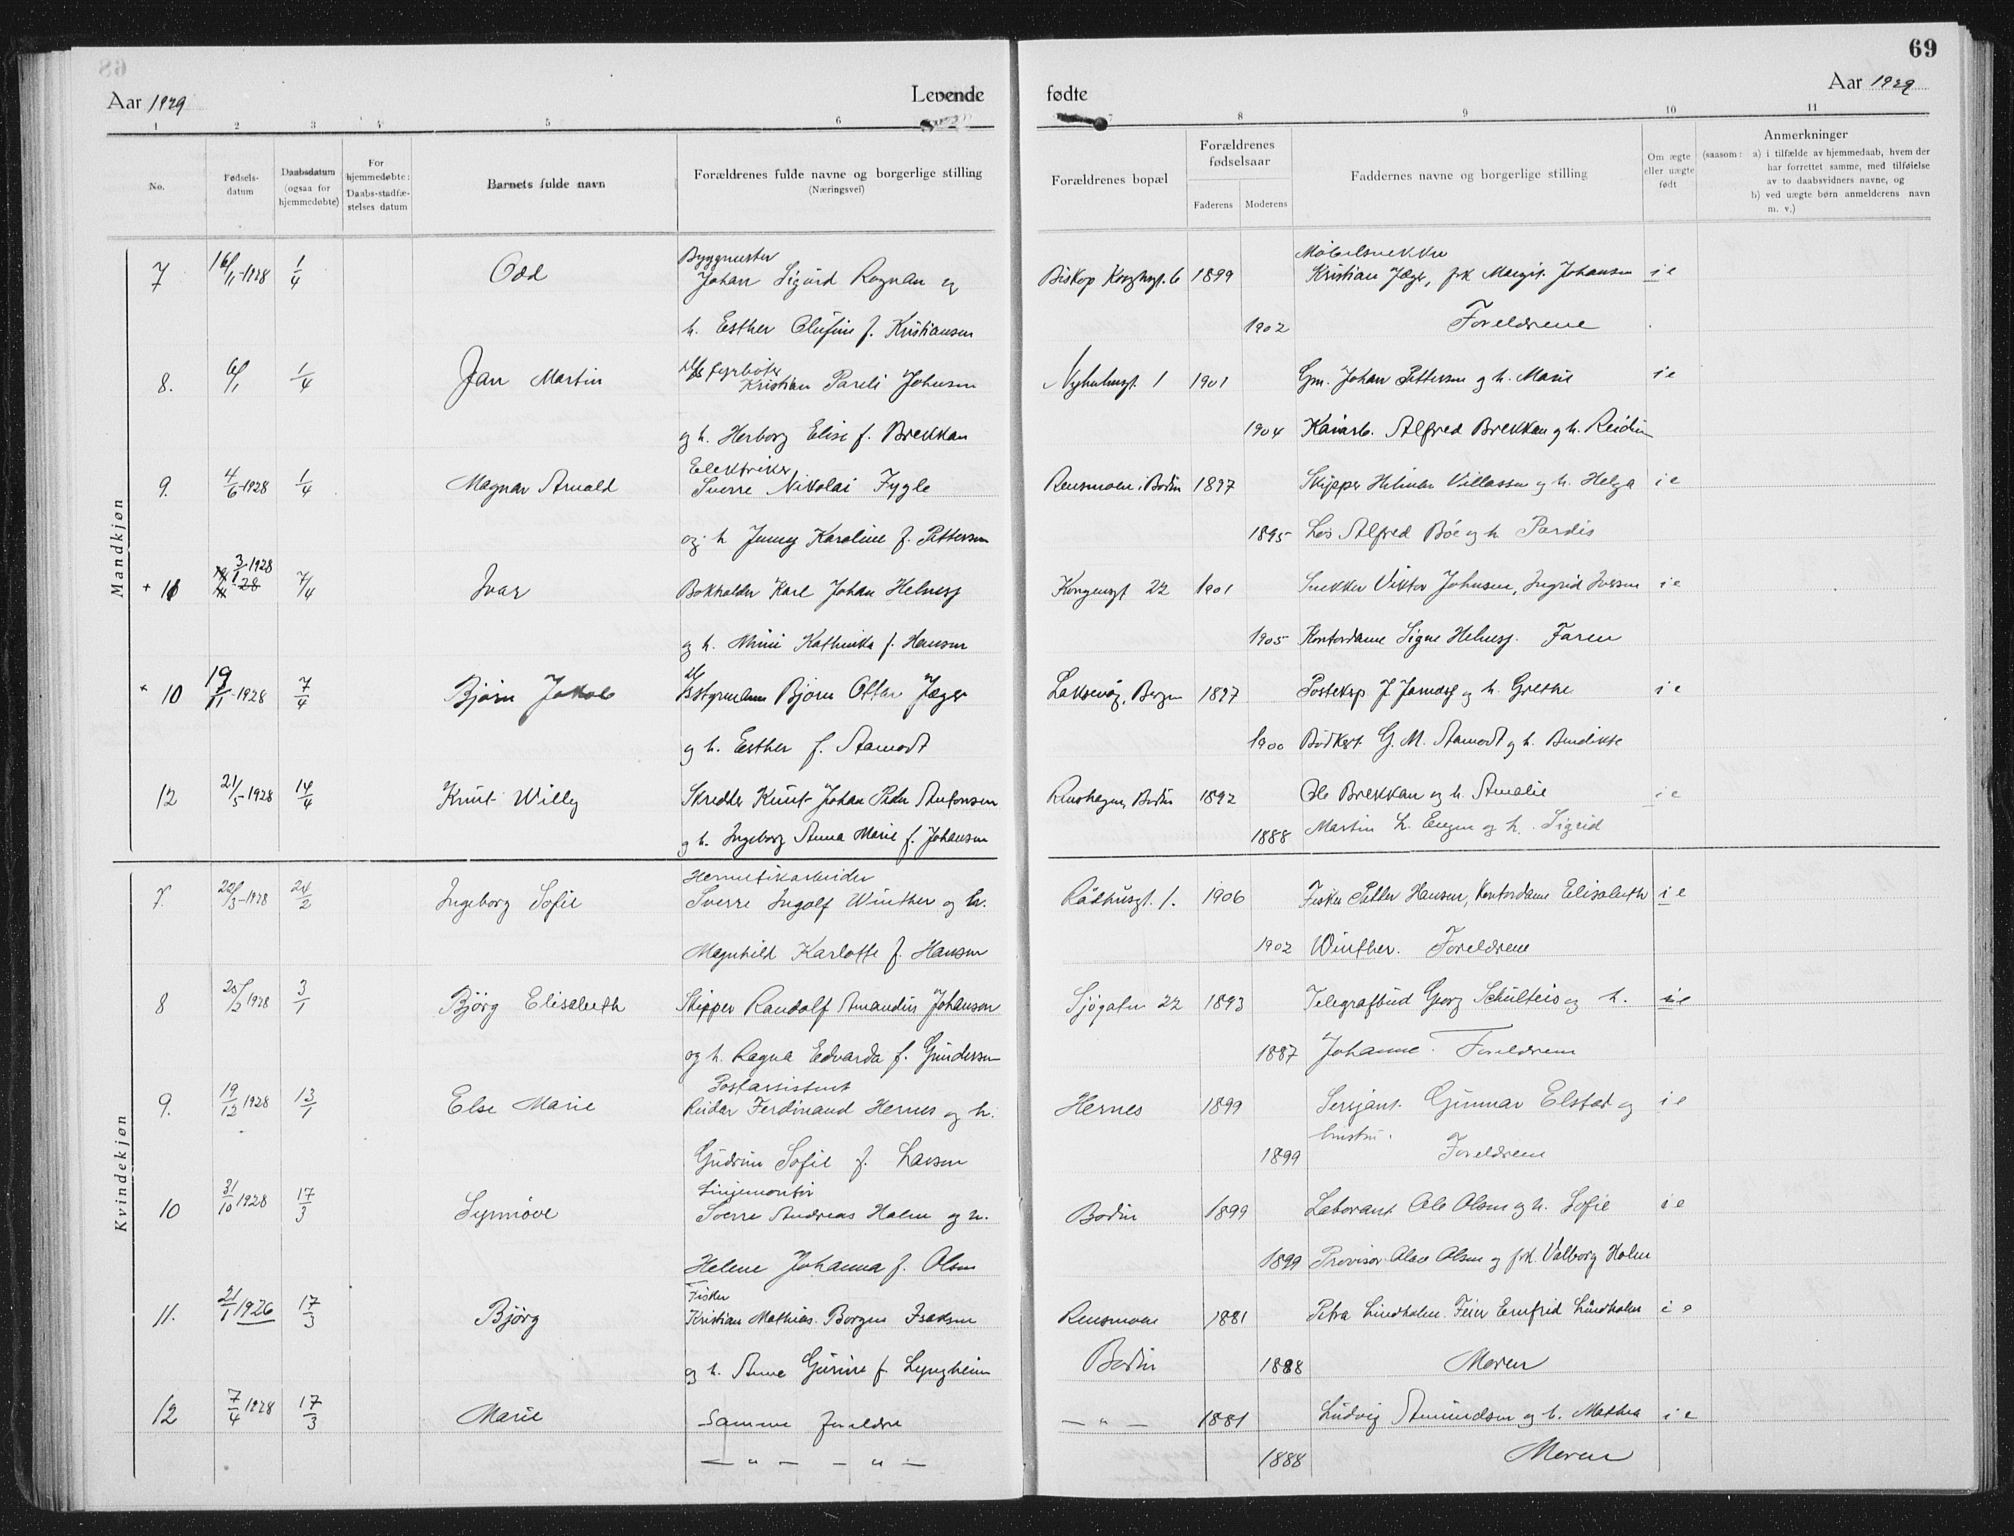 69
Aar 1929 Levende fødte Aar 1929
1 2 3 4 5 6 7 8 9 10 11
No.
Fødsels-datum
Daabsdatum (ogsaa for hjemmedøbte)
For hjemmedøbte: Daabs-stadfæstelses datum
Barnets fulde navn
Forældrenes fulde navne og borgerlige stilling (Næringsvei)
Forældrenes bopæl
Forældrenes fødselsaar
Faderens Moderens
Faddernes navne og borgerlige stilling
Om ægte eller uægte født
Anmerkninger
(saasom: a) i tilfælde av hjemmedaab, hvem der
har forrettet samme, med tilføielse
av to daabsvidners navne, og
b) ved uægte børn anmelderens navn
m. v.)
Mandkjøn
Byggmester Møbelsnekker
7 16/11-1928 1/4 Odd Johan Sigurd Rognan og 1899 Kristian Jæger, frk Margit Johansen ie
h. Esther Olufine f. Kristiansen 1902 Foreldrene
8. 6/1 1/4 Jan Martin fyrbøter Kristian Pareli Johnsen 1 1901 Gm. Johan Pettersen og h. Marie ie
og h. Herborg Elise f. Brekkan 1904 Alfred Brekkan og h. Reidun
Elektriker
9. 4/6-1928 1/4 Magnar Arnald Sverre Nikolai Fygle Rensmoen, Bodin 1897 Skipper Hilmar Villassen og h. Helga ie
og h Jenny Karoline f. Pettersen 1895 Los Alfred Bøe og h Pardis
3/1-1928
+ 11 7/4 Ivar Bokholder Karl Johan Helnesj Kongensgt 22 1901 Snekker Viktor Johnsen, Ingrid Iversen ie
og h. Mimi Kathinka f. Hansen 1905 Kontordame Signe Helnesj. Faren
+ 10 19/11-1928 7/4 Bjørn Jakob Styrmann Bjørn Ottar Jæger Laksevåg, Bergen 1897 Posteksp. J. og h. Grethe ie
og h. Esther f. Aamodt 1900 G. M. Aamodt og h. Bendikte
12 21/5-1928 14/4 Knut Willy Skredder Knut Johan Peder Antonsen Bodin 1892 Ole Brekkan og h. Amalie ie
og h. Ingeborg Anna Marie f. Johansen 1888 Martin L. Engen og h. Sigrid
Kvindekjøn
Hermetikarbeider
7. 22/3-1928 24/2 Ingeborg Sofie Sverre Ingolf Winther og h. Rådhusgt. 1. 1906 Fisker Petter Hansen, Kontordame Elisabeth ie
Magnhild Karlotte f. Hansen 1902 Winther. Foreldrene
8 1928 3/1 Bjørg Elisabeth Skipper Randolf Amandus Johansen Sjøgaten 22 1893 Telegrafbud Georg Schulteis og h. ie
og h. Ragna Edvarda f. Gundersen 1887 Johanne. Foreldrene
Postassistent
9. 19/12 1928 13/1 Else Marie Reidar Ferdinand Hernes og h. Hernes 1899 Sersjant. Gunnar Elstad og ie
hustru.
Gudrun Sofie f. Larsen 1899 Foreldrene
Linjemontør
10 31/10 1928 17/3 Synnøve Sverre Andreas Holm og h. Bodin 1899 Laborant Ole Olsen og h. Sofie ie
Helene Johanna f. Olsen 1899 Provisor Olav Olsen og frk. Valborg Holm
Fisker
11. 21/1 1926 17/3 Bjørg Kristian Mathias Borgen Isaksen Rensmoen 1881 Petra Lindholm. Feier Ernfrid Lindholm ie
og h. Anna Gurine f. Lyngheim Bodin 1888 Moren
12 7/4 1928 17/3 Marie Samme foreldre — " — 1881 Ludvig Amundsen og h. Mathea ie
— " — — " — 1888 Moren